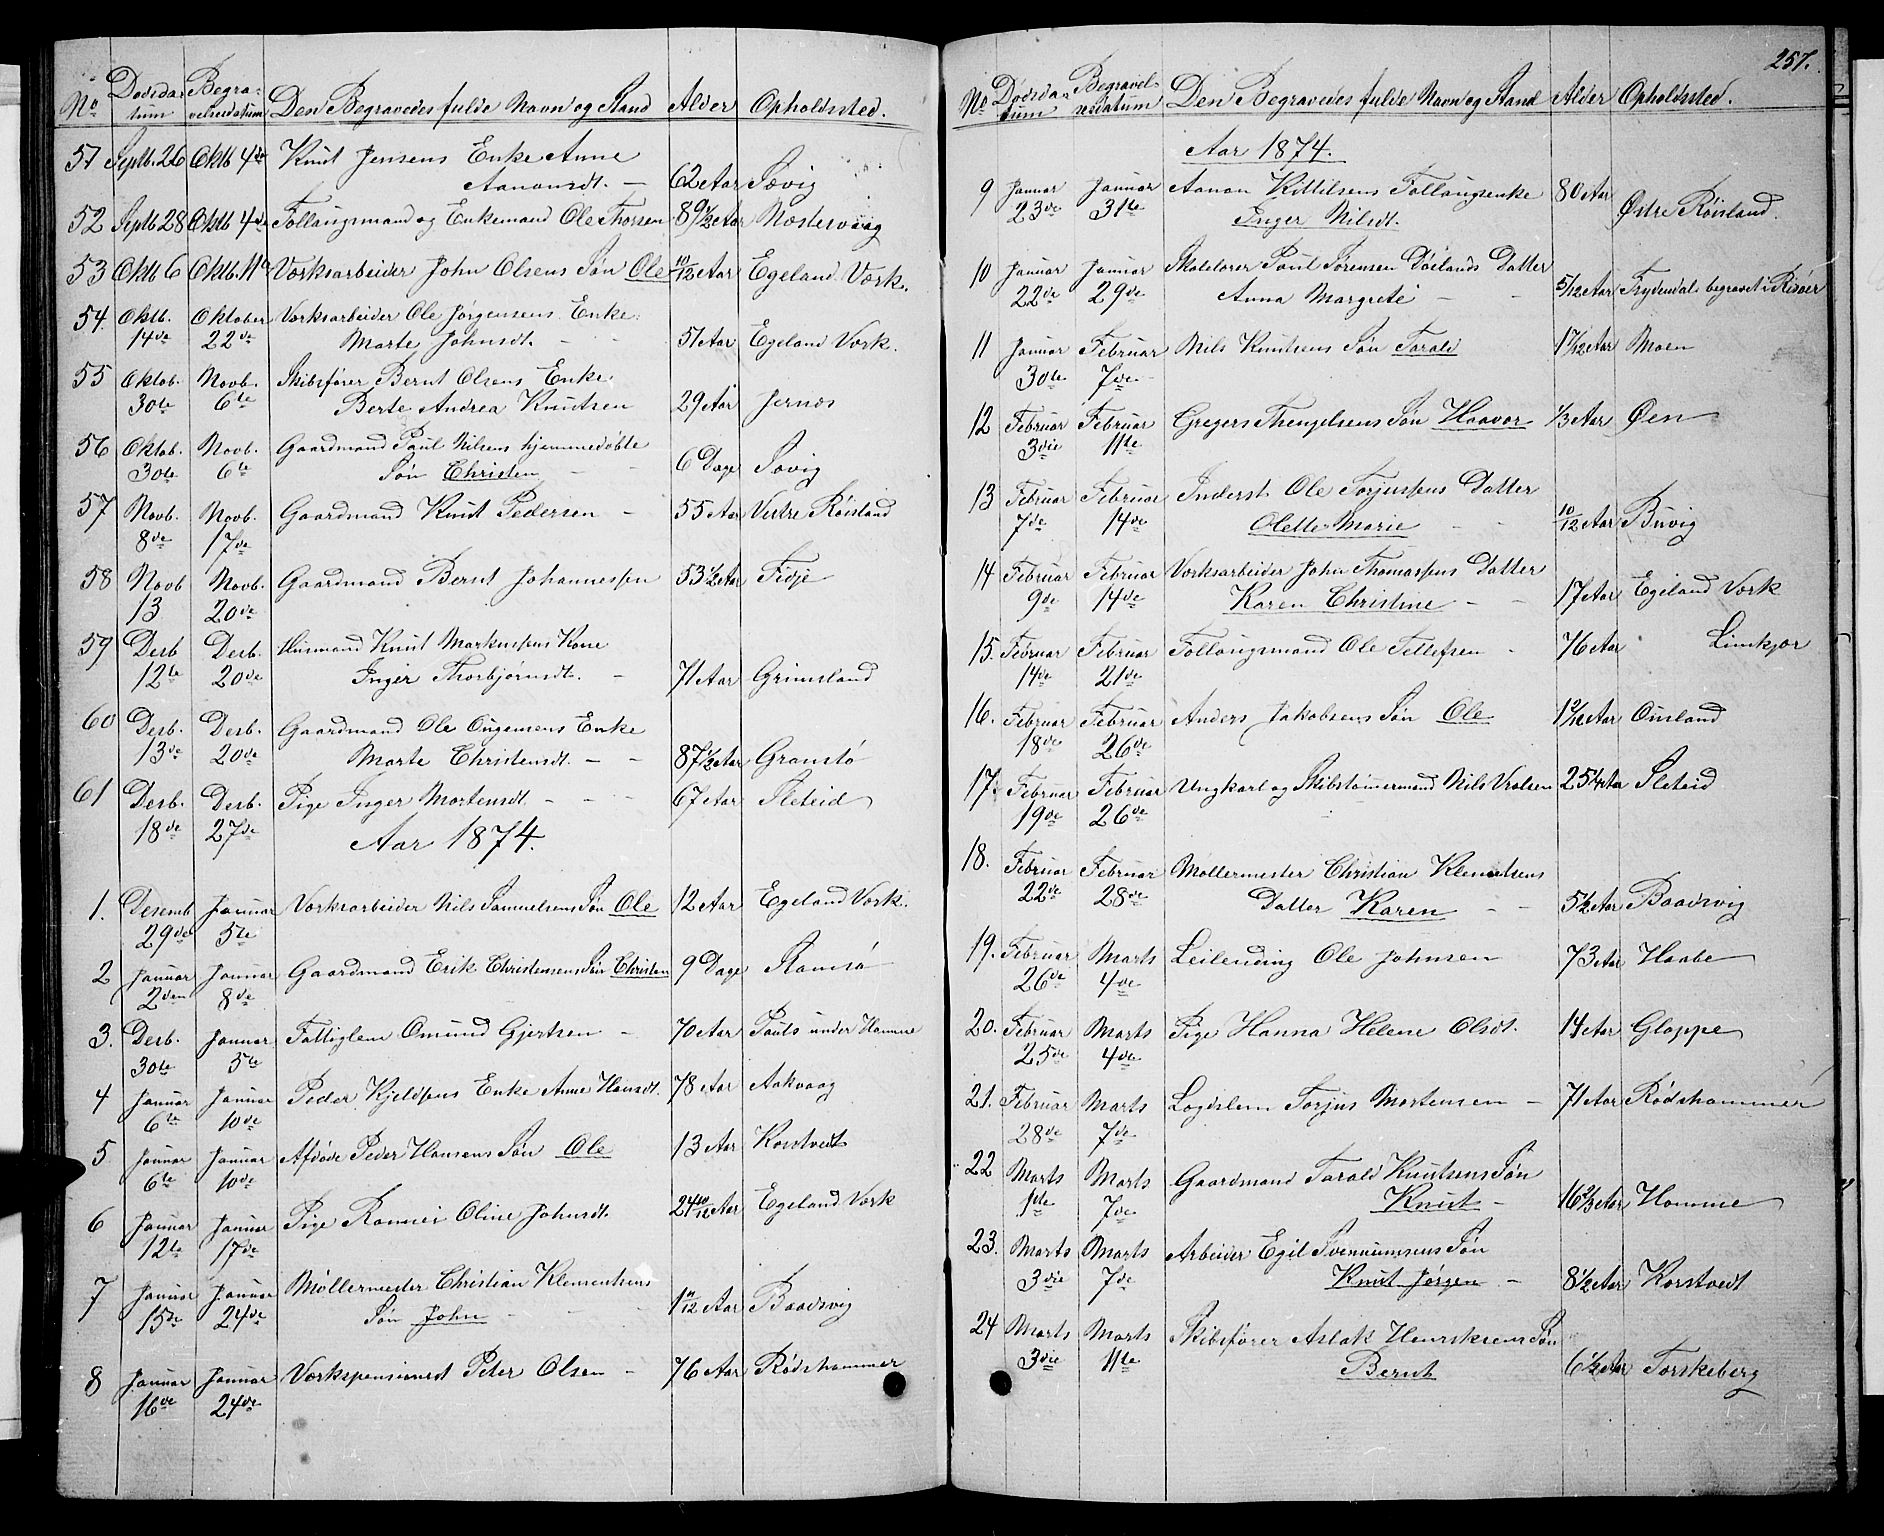 No Dødsda- Begra- Den Begravedes fulde Navn og Stand Alder Opholdssted.
tum velsesdatum
51 Septb. 26 Oktb 4de Knut Jensens Enke Anne
Aanonsdt. — 62 Aar Søvig
52 Septb 28 Oktb 4de Follaugsmand og Enkemand Ole Thorsen 89 1/2 Aar Næstervaag
53 Oktb 6 Oktb. 11te Værksarbeider John Olsens Søn Ole 10/12 Aar Egeland Værk.
54. Oktb. Oktober Værksarbeider Ole Jørgensens Enke
14de 22de Marte Johnsdt. - - 51 Aar Egeland Værk.
55 Oktob. Novb. Skibsfører Bernt Olsens Enke
30te 6te Berte Andrea Knutsen 29 Aar Jernes
56 Oktob. Novb. Gaardmand Paul Nilsens hjemmedøbte
30te 6te Søn Christen - - 6 Dage Søvig
57 Novb. Novb. Gaardmand Knut Pedersen - 55 Aar Vestre Røisland
8de 17de
58 Novb Novb. Gaardmand Bernt Johannessen 53 1/2 Aar Fidje
13 20de
59 Desb Desb. Husmand Knut Markussens Kone
12te 20de Inger Thorbjørnsdt. - 71 Aar Grimsland
60 Desb. Desb. Gaardmand Ole Ougemens Enke
13de 20de Marte Christensdt. - - 87 1/2 Aar Gramstø
61 Desb. Desb. Pige Inger Mortensdt. - - - 67 Aar Sleteid
18de 27de Aar 1874.
1. Desemb Januar Værksarbeider Nils Samuelsens Søn Ole 12 Aar Egeland Værk.
29de 5te
2 Januar Januar Gaardmand Erik Christensens Søn Christen 9 Dage Stamsø
2den 8de
3. Desb. Januar Fattiglem Omund Gjertsen - 70 Aar Pauts under Homme
30te 5te
4 Januar Januar Peder Kjeldsens Enke Anne Hansdt. 78 Aar Aakvaag
6te 10de
5 Januar Januar Afdøde Peder Hansens Søn Ole 13 Aar Korstvedt
6te 10de
6 Januar Januar Pige Rønnei Oline Johnsdt. 24 10/12 Aar Egeland Værk
12te 17de
7 Januar Januar Møllermester Christian Klementsens
15de 24de Søn John - - - 1 11/12 Aar Baadsvig
8 Januar Januar Værkspensionist Peter Olsen - 76 Aar Rødshammer
16de 24de
257.
No Dødsda- Begravel- Den Begravedes fulde Navn og Stand Alder Opholdssted.
tum sesdatum
Aar 1874.
9 Januar Januar Aanon Kittilsens Follaugsenke 80 Aar
23de 31te Inger Nilsdt. Østre Røisland.
10 Januar Januar Skolelærer Poul Sørensen Døilands Datter
22de 29de Anna Margrete - - 5/12 Aar Frydendal begravet i Risøer
11 Januar Februar Nils Knutsens Søn Tarald 1 1/12 Aar Moen
30te 7de
12 Februar Februar Gregers Thengelsens Søn Haavor 1/3 Aar Øen
3die 11te
13 Februar Februar Inderst Ole Torjussens Datter
7de 14de Olette Marie - - 10/12 Aar Buvig
14 Februar Februar Værksarbeider John Thomassens Datter
9de 14de Karen Christine - - 17 Aar Egeland Værk
15. Februar Februar Follaugsmand Ole Tellefsen - 76 Aar Limkjær
14de 21de
16. Februar Februar Anders Jakobsens Søn Ole 1 2/12 Aar Ousland
18de 26de
17. Februar Februar Ungkarl og Skibstømmermand Nils Vrolsen 25 1/4 Aar Sleteid
19de 26de
18. Februar Februar Møllermester Christian Klementsens
22de 28de Datter Karen - - 5 1/2 Aar Baadsvig
19. Februar Marts Leilending Ole Johnsen 73 Aar Haabe
26de 4de
20. Februar Marts Pige Hanna Helene Olsdt. 14 Aar Gloppe
25de 4de
21. Februar Marts Logdslem Torjus Mortensen - 71 Aar Rødshammer
28de 7de
22 Marts Marts Gaardmand Tarald Knutsens Søn
1ste 7de Knut - 16 2/3 Aar Homme
23. Marts Marts Arbeider Egil Svennumsens Søn
3die 7de Knut Jørgen - 8 1/2 Aar Korstvedt
24 Marts Marts Skibsfører Aslak Henriksens Søn
3die 11te Bernt 6 1/2 Aar Torskeberg